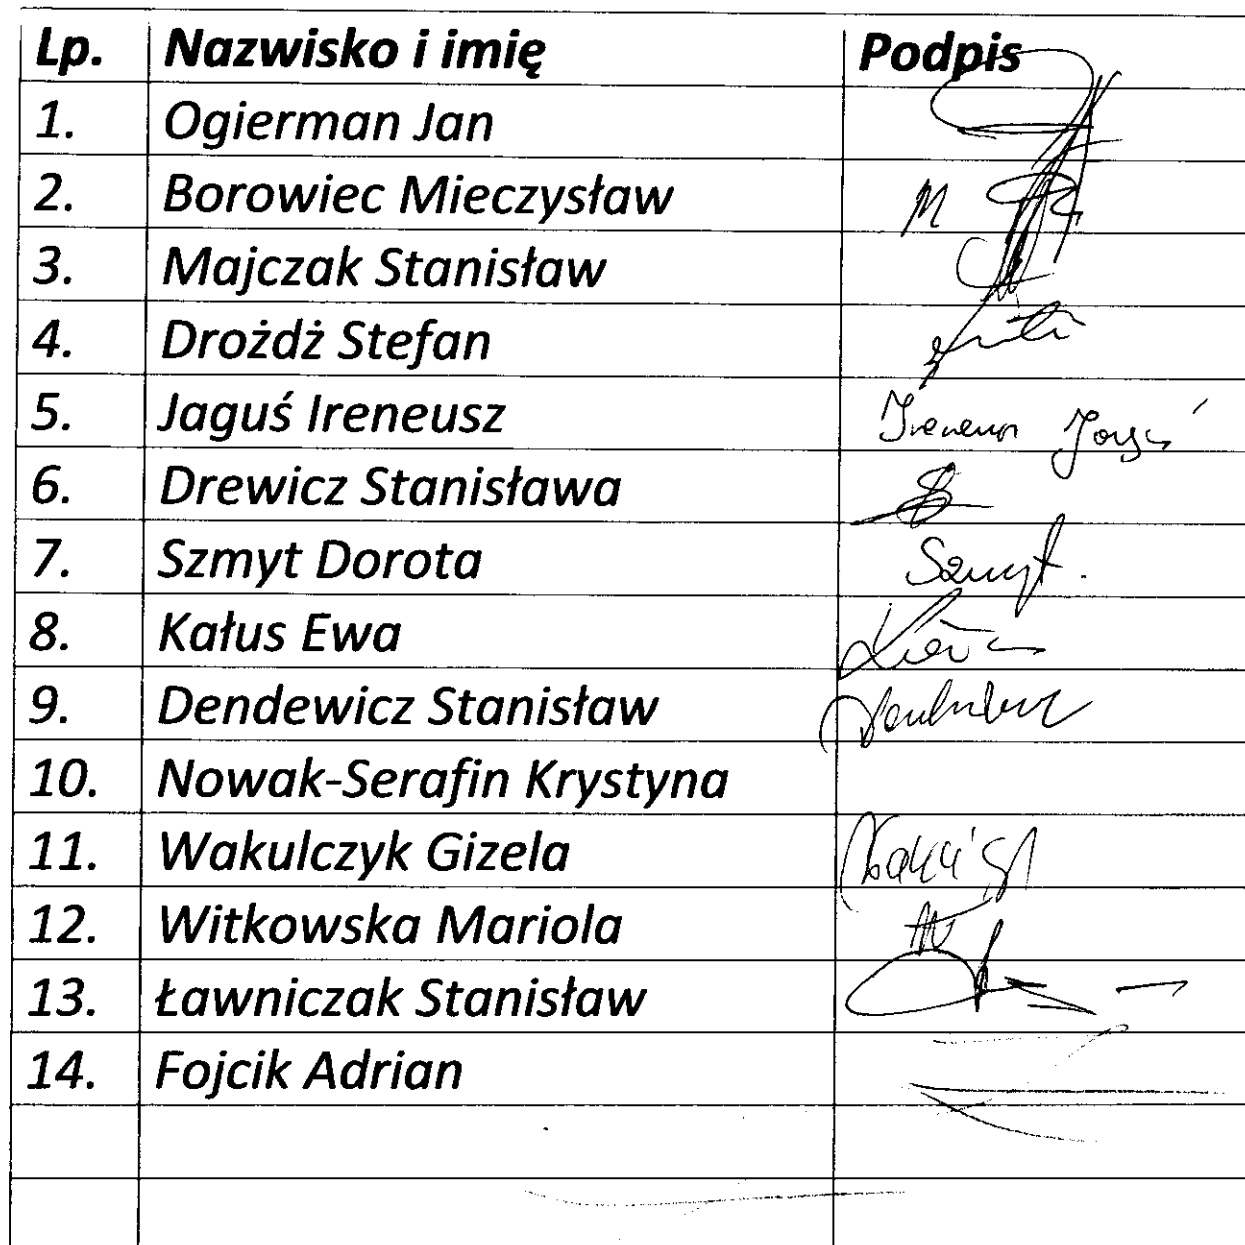 Lp. Nazwisko i imię Podpis
1. Ogierman Jan
2. Borowiec Mieczysław M
3. Majczak Stanisław
4. Drożdż Stefan
5. Jaguś Ireneusz
6. Drewicz Stanisława
7. Szmyt Dorota Szmyt.
8. Kałus Ewa
9. Dendewicz Stanisław
10. Nowak-Serafin Krystyna
11. Wakulczyk Gizela
12. Witkowska Mariola
13. Ławniczak Stanisław
14. Fojcik Adrian